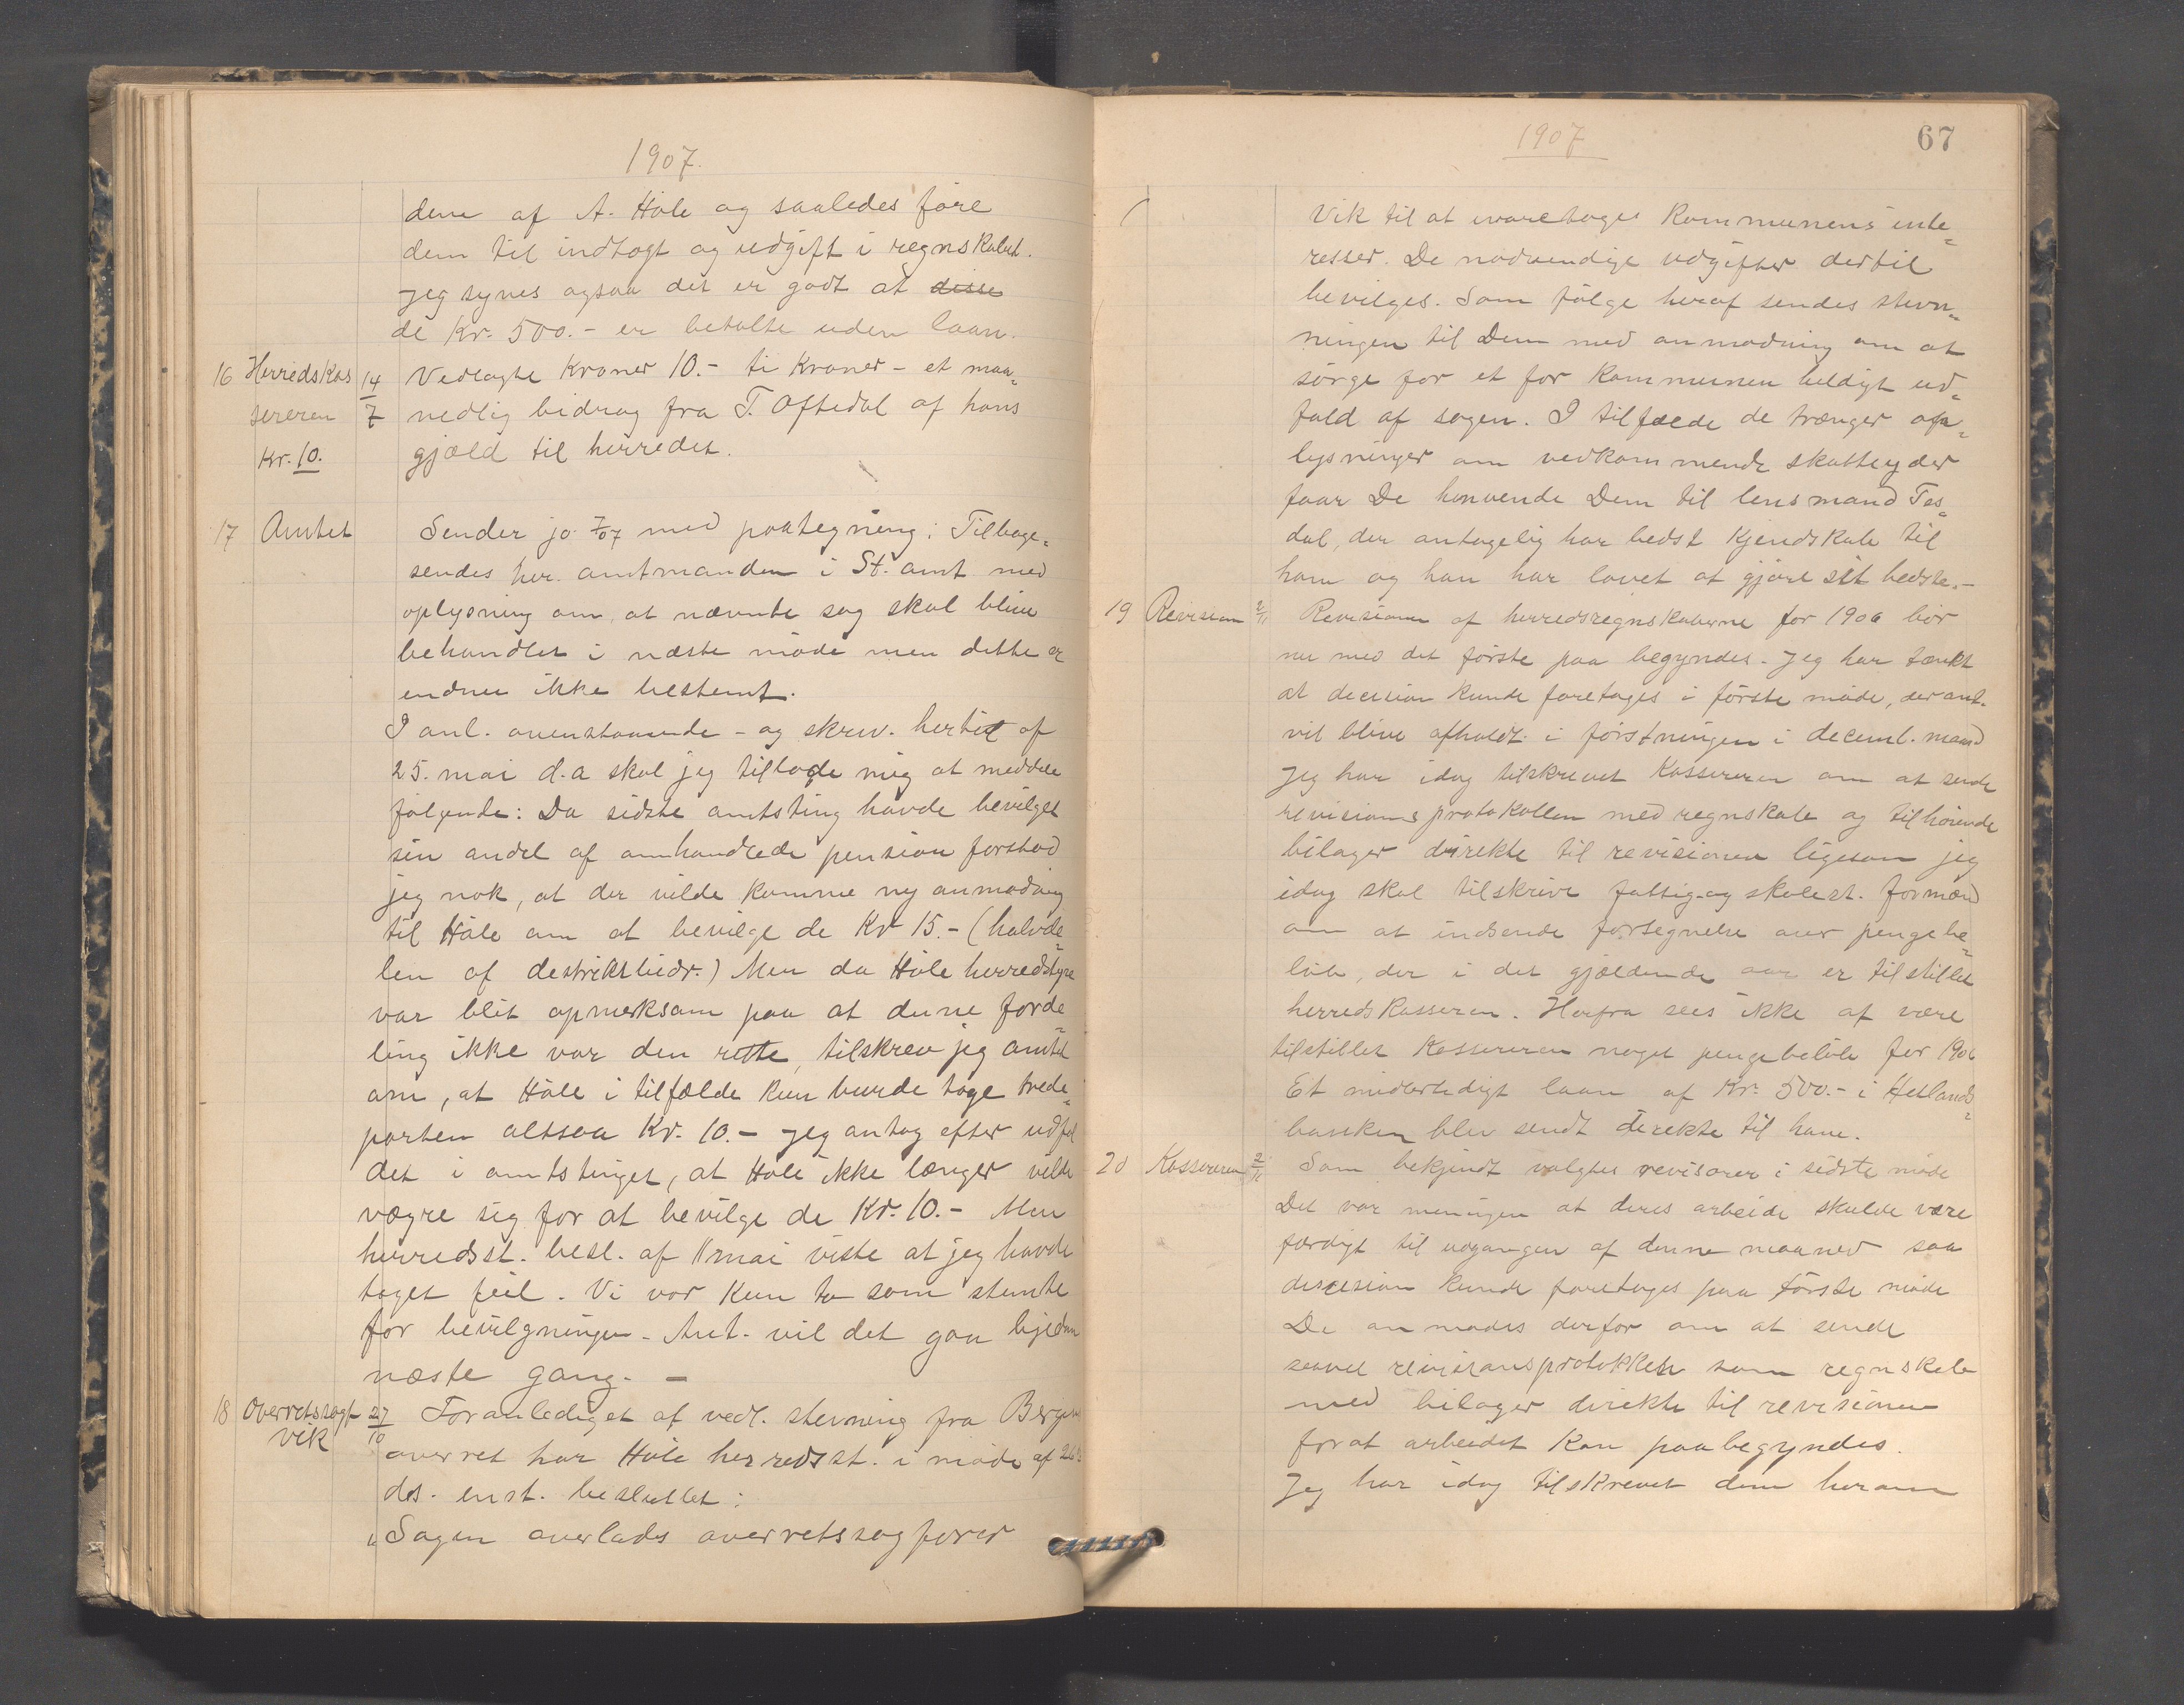 1907.
dem af A. Høle og saaledes føre
dem til indtægt og udgift i regnskabet.
Jeg synes ogsaa det er godt at disse
de Kr. 500.- er betalte uden laan.
16 Herredskas 14/7 Vedlagte Kroner 10.- ti Kroner - et maa-
sereren nedlig bidrag fra T. Oftedal af hans
Kr. 10. gjæld til herredet.
17 Amtet Sender jo 7/07 med paategning: Tilbage-
sendes hr. amtmanden i St. amt med
oplysning om, at nævnte sag skal blive
behandlet i næste møde men dette er
endnu ikke bestemt.
I anl. ovenstaaende - og skriv. hertil af
25. mai d.a skal jeg tillade mig at meddele
følgende: Da sidste amtsting havde bevilget
sin andel af omhandlede pension forstod
jeg nok, at der vilde komme ny anmodning
til Høle om at bevilge de Kr 15.- (halvde-
len af destriktsbidr.) Men da Høle herredstyre
var blit opmerksom paa at denne forde-
ling ikke var den rette, tilskrev jeg amtet
om, at Høle i tilfælde kun burde tage trede-
parten altsaa Kr. 10.- Jeg antog efter udfal
det i amtstinget, at Høle ikke længer vilde
vægre sig for at bevilge de Kr. 10.- Men
herredsst. besl. af 11 mai viste at jeg havde
taget feil. Vi var kun to som stemte
for bevilgningen. Ant. vil det gaa igjennem
næste gang. -
18 Overretssagf 27/10 Foranlediget af vedl. stevning fra Bergens
Vik overret har Høle herredsst. i møde af 26
ds. enst. besluttet:
Sagen overlades overretssagfører
1907
67
Vik til at varetage Kommunens inte-
resser. De nødvendige udgifter dertil
bevilges. Som følge heraf sendes stevn-
ningen til Dem med anmodning om at
sørge for et for Kommunen heldigt ud-
fald af sagen. I tilfælde de trænger op-
lysninger om vedkommende skatteyder
faar De henvende Dem til lensmand Tes-
dal, der antagelig har bedst Kjendskab til
ham og han har lovet at gjøre sit bedste.-
19 Revision 2/11 Revisionen af herredsregnskaberne for 1906 bør
nu med det første paa begyndes. Jeg har tænkt
at decision kunde foretages i første møde, der ant.
vil blive afholdt i førstningen i decemb. maaned
Jeg har idag tilskrevet Kassereren om at sende
revisionsprotokollen med regnskab og tilhørende
bilager direkte til revisionen ligesom jeg
idag skal tilskrive fattig- og skolest. formænd
om at indsende fortegnelse over pengebe-
løb, der i det gjældende aar er tilstillet
herredskasseren. Herfra sees ikke at være
tilstillet Kassereren noget pengebeløb for 1906
Et midlertidigt laan af Kr. 500.- i Hetlands-
banken blev sendt direkte til ham.
20 Kassereren 2/11 Som bekjendt valgtes revisorer i sidste møde
Det var meningen at deres arbeide skulde være
færdigt til udgangen af denne maaned saa
descision kunde foretages paa første møde
De anmodes derfor om at sende
saavel revisionsprotokollen som regnskab
med bilager direkte til revisionen
for at arbeidet kan paabegyndes.
Jeg har idag tilskrevet dem herom